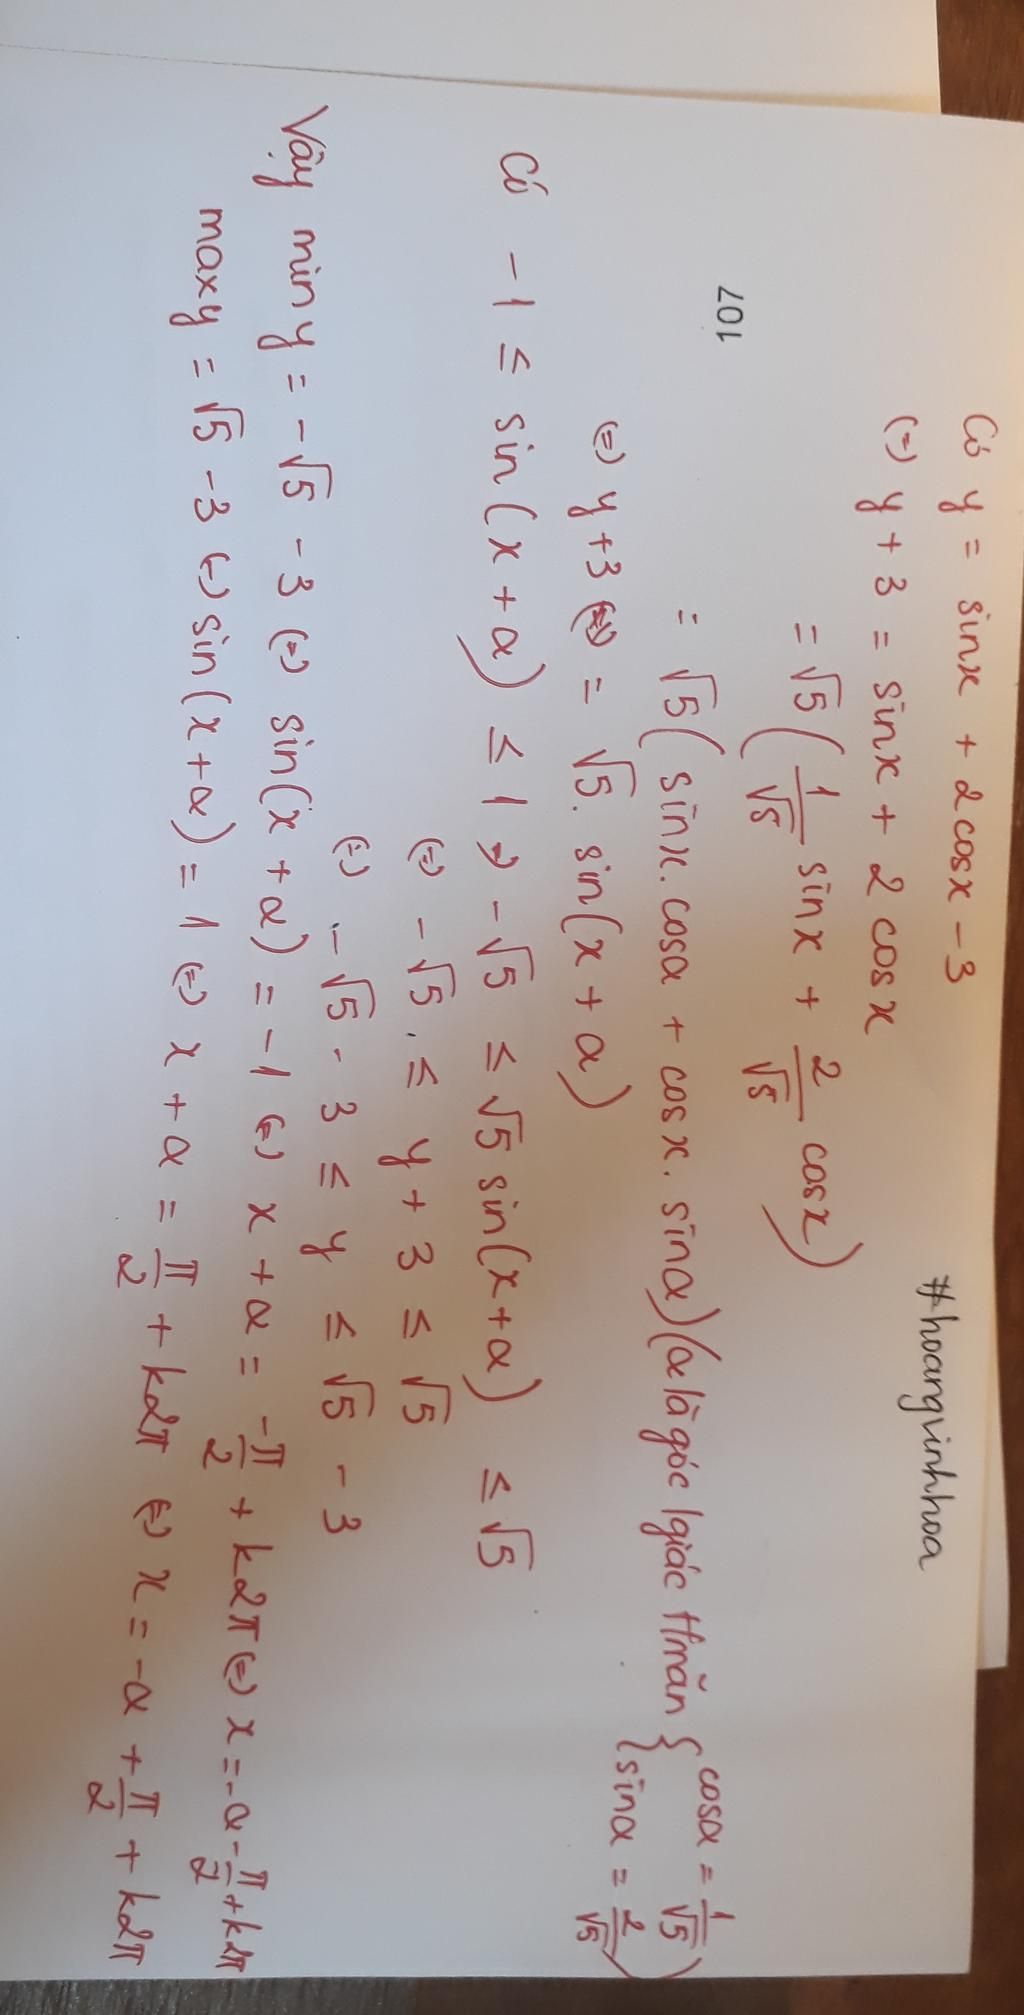 #hoangvinhhoa
Có y = sinx + 2cosx - 3
(=) y + 3 = sinx + 2 cosx
= √5 ( 1/√5 sinx + 2/√5 cosx )
107
= √5 ( sinx. cosα + cosx. sinα ) (α là góc lgiác tmãn { cosα = 1/√5 sinα = 2/√5 )
(=) y + 3 = √5. sin(x + α)
Có -1 ≤ sin(x + α) ≤ 1 → -√5 ≤ √5 sin(x+α) ≤ √5
(=) -√5 ≤ y + 3 ≤ √5
(=) -√5 - 3 ≤ y ≤ √5 - 3
Vậy min y = -√5 - 3 (=) sin(x + α) = -1 (=) x + α = -π/2 + k2π (=) x = -α - π/2 + k2π
max y = √5 - 3 (=) sin(x + α) = 1 (=) x + α = π/2 + k2π (=) x = -α + π/2 + k2π